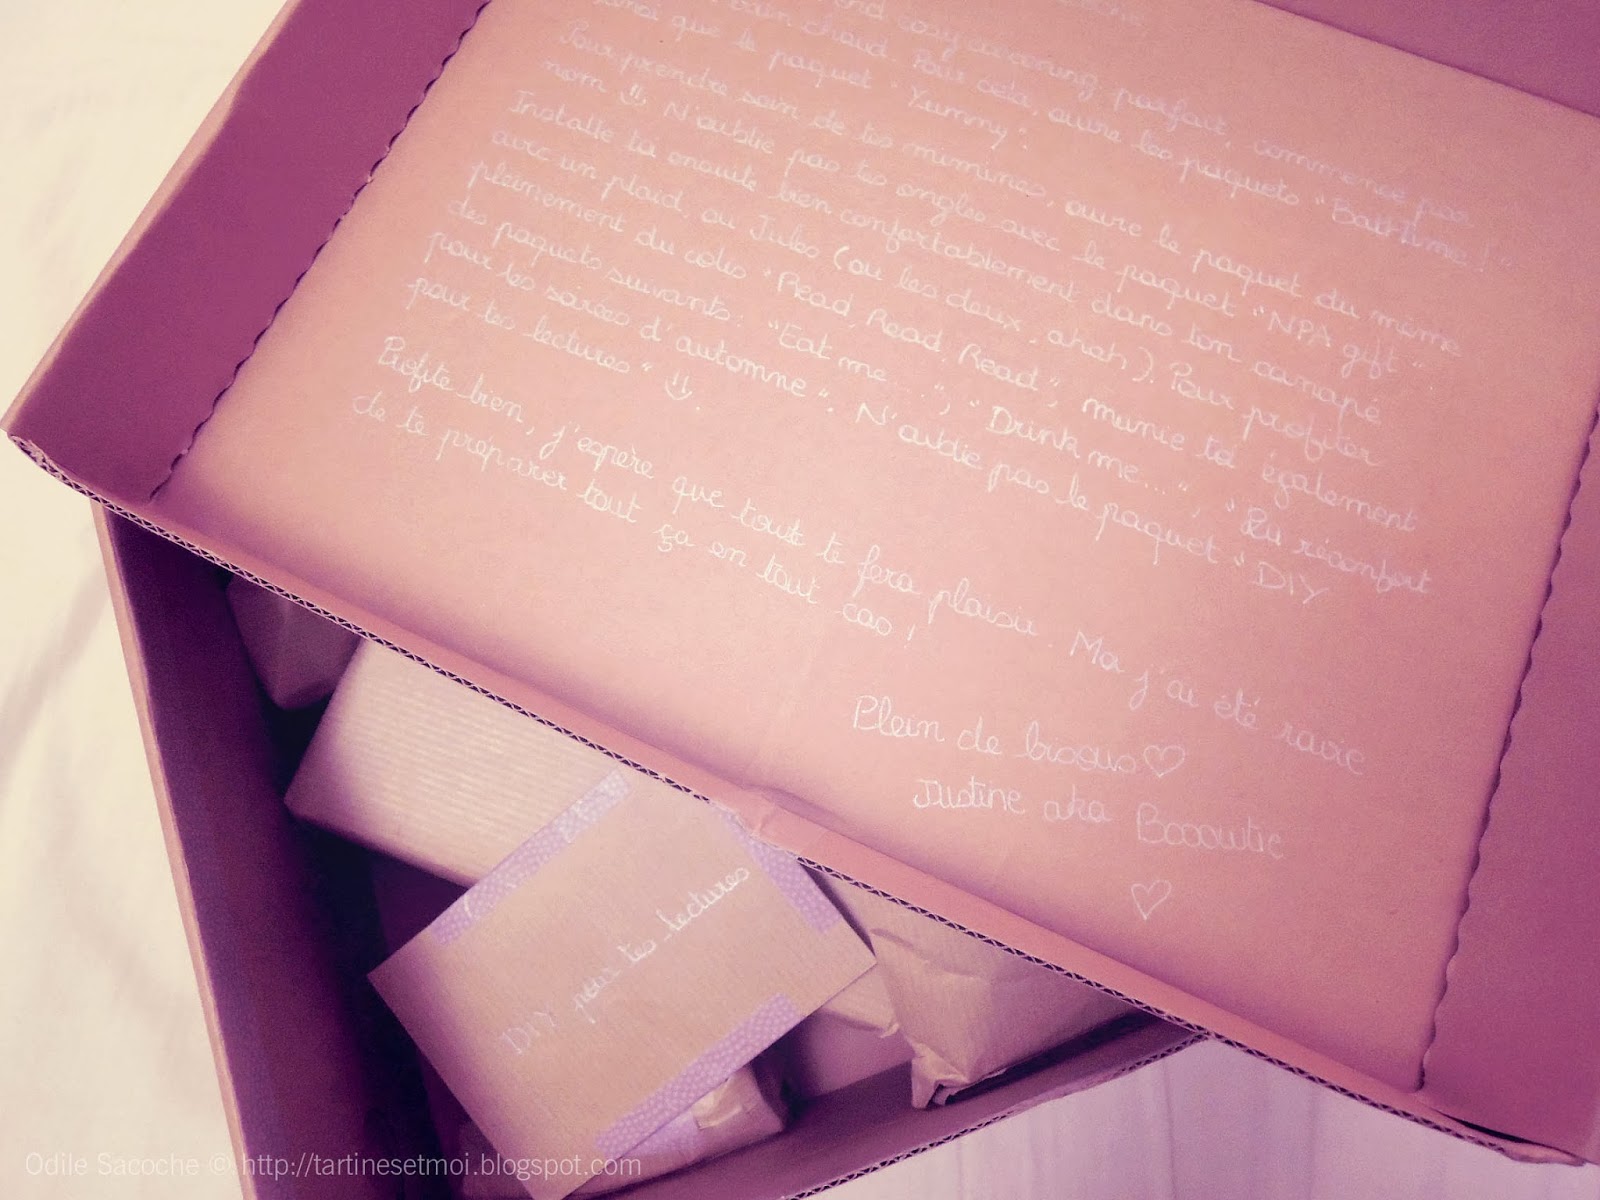 cosy cocooning parfait, commence par
bain chaud. Pour cela, ouvre les paquets "Bath time!"
ainsi que le paquet "Yummy".
Pour prendre soin de tes mimines, ouvre le paquet du même
nom :) N'oublie pas tes ongles avec le paquet "NPA gift".
Installe toi ensuite bien confortablement dans ton canapé
avec un plaid, ou Jules (ou les deux, ahah). Pour profiter
pleinement du colis "Read, Read, Read", munie toi également
des paquets suivants: "Eat me...", "Drink me...", "Du réconfort
pour les soirées d'automne". N'oublie pas le paquet "DIY
pour tes lectures" :).
Profite bien, j'espère que tout te fera plaisir. Moi j'ai été ravie
de te préparer tout ça en tout cas!
Plein de bisous ♡
Justine aka Booowtie
♡
DIY pour tes lectures
Odile Sacoche © http://tartinesetmoi.blogspot.com